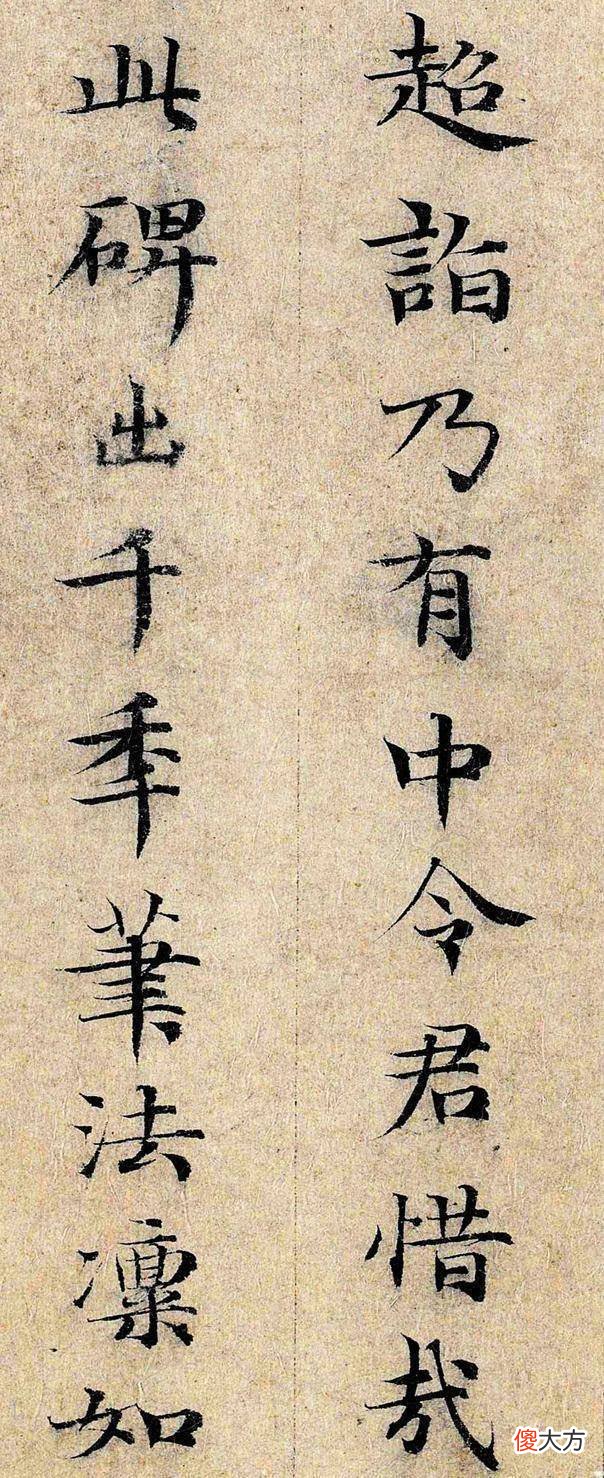 超詣乃有中令君惜哉
此碑出千季筆法凛如
傻大方